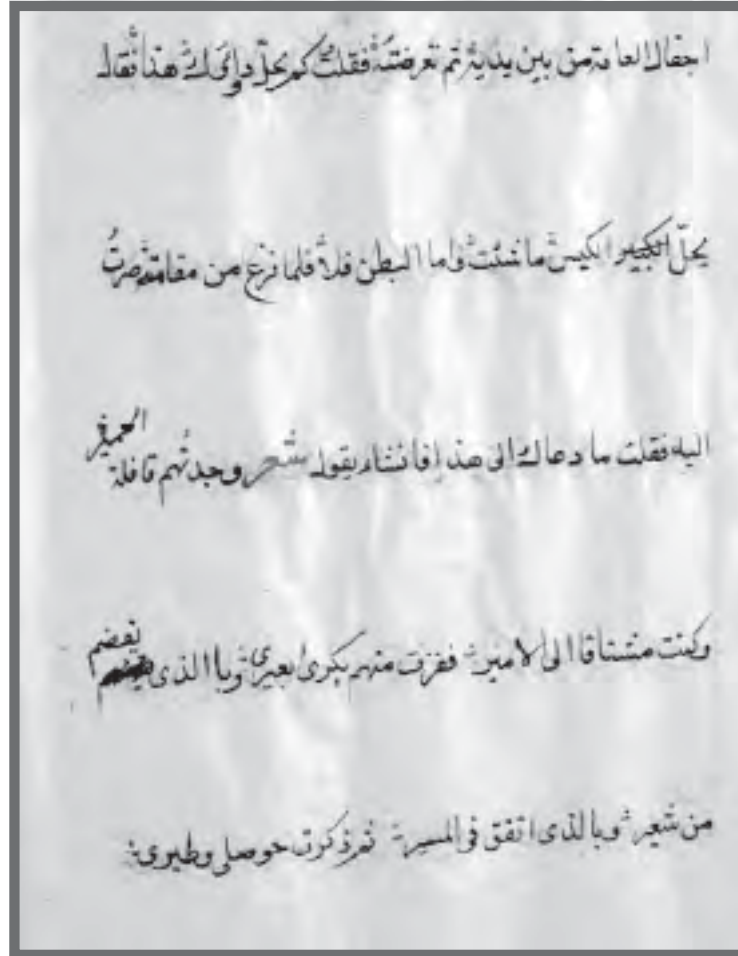 اجفال العامة من بين يديه ثم تعرضته فقلت كم يحل دواؤك هذا فقال
يحل الكبير الكيس ما شئت فاما البطن فلا فلما فرغ من مقامته صرت
اليه فقلت ما دعاك الى هذا فانشاء يقول شعر وجدتهم قافلة الحمير
وكنت مشتاقا الى الامير ففزت منهم بكرى بعيرى وبا الذى يقضم
من شعير وبالذى اتفق فى المسير ثم ذكرت حوصلى وطيرى